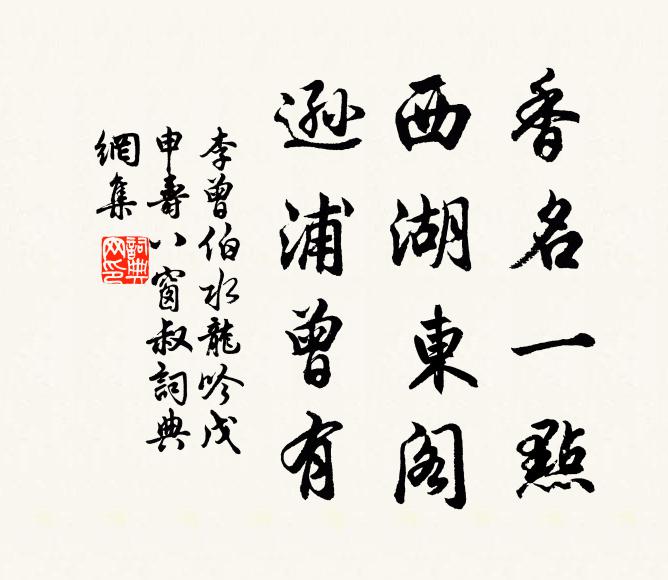 香名一點
西湖東閣
遜浦曾有
李曾伯水龍吟戊
申壽八窗叔詞典
網集
詞典网印